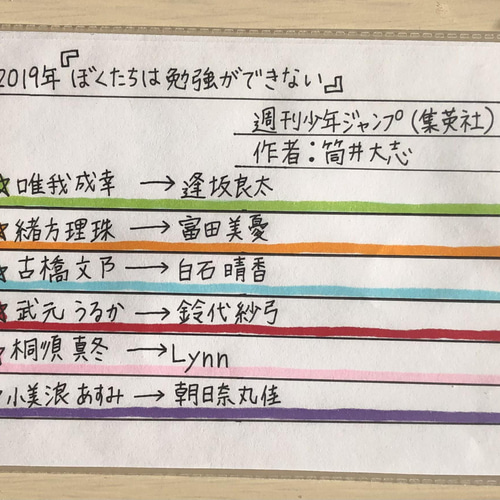 2019年『ぼくたちは勉強ができない』
週刊少年ジャンプ(集英社)
作者:筒井大志
☆唯我成幸→逢坂良太
☆緒方理珠→富田美憂
☆古橋文乃→白石晴香
☆武元うるか→鈴代紗弓
☆桐須真冬→Lynn
☆小美浪あすみ→朝日奈丸佳